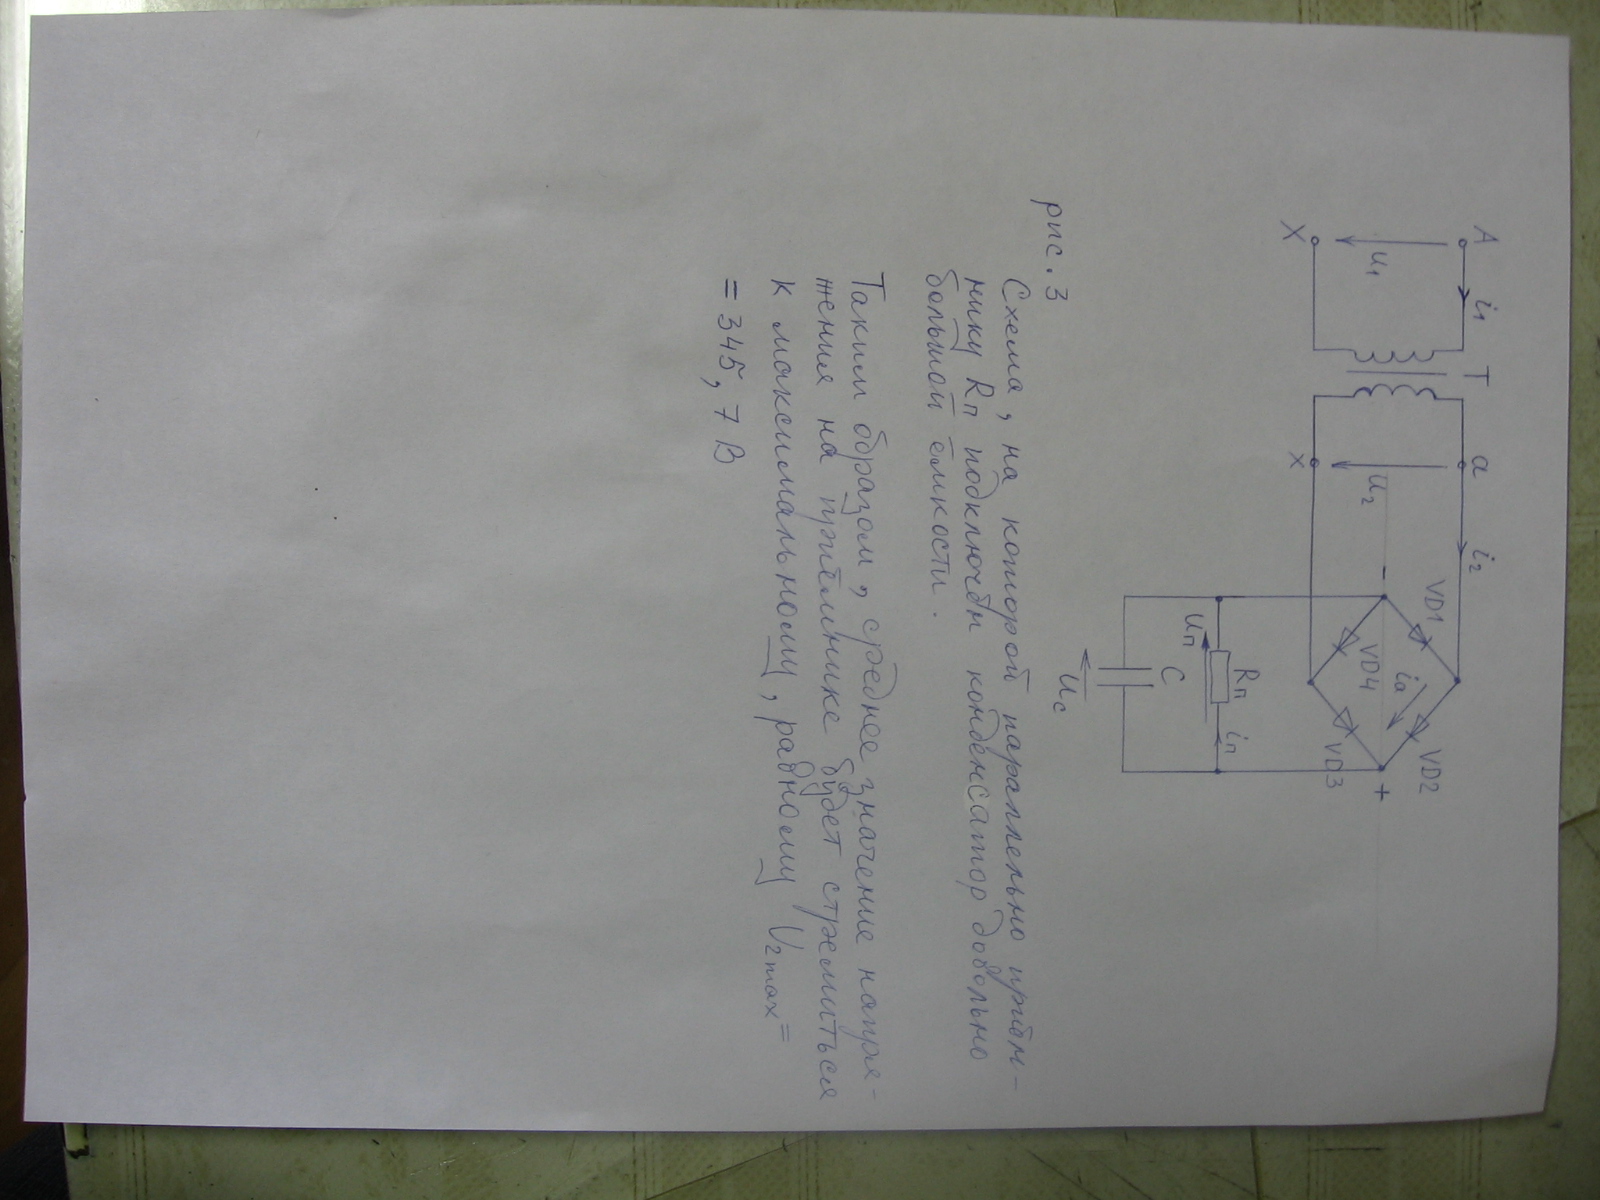 A i₁ T a i₂
VD1 VD2
u₁ u₂ iа
- +
VD4 VD3
X x
Rп iп
uп
C
uc
рис. 3
Схема, на которой параллельно приём-
нику Rп подключён конденсатор довольно
большой ёмкости.
Таким образом, среднее значение напря-
жения на приёмнике будет стремиться
к максимальному, равному U₂max =
= 345,7 В